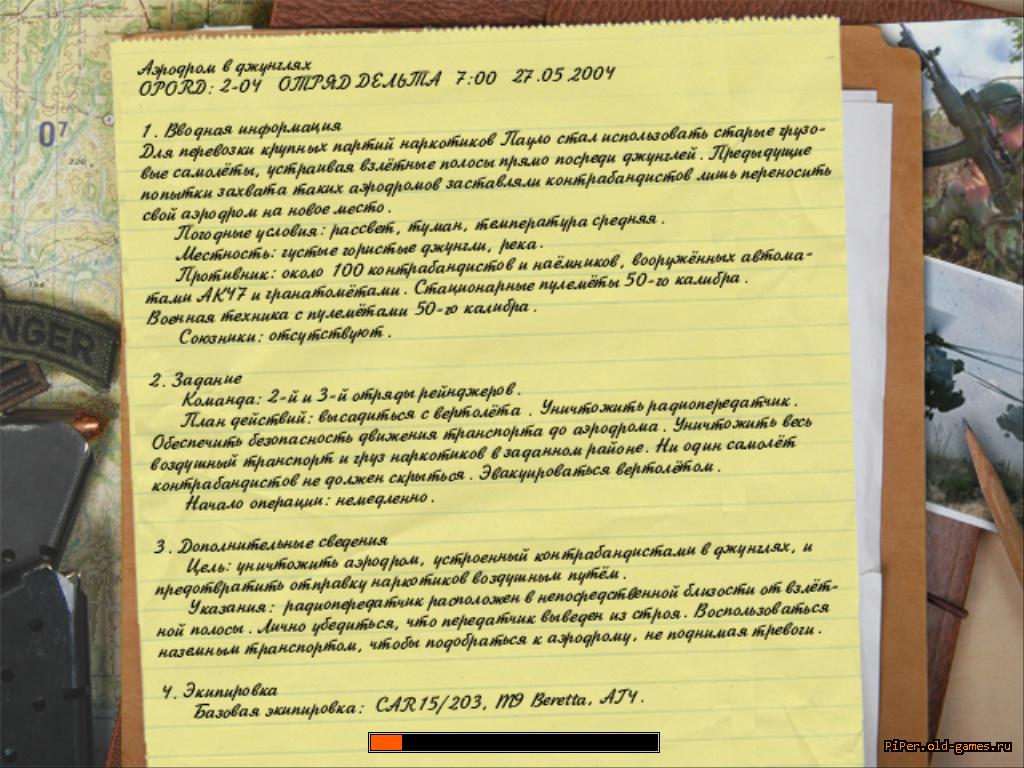 Аэродром в джунглях
OPORD: 2-04 ОТРЯД ДЕЛЬТА 7:00 27.05.2004
1. Вводная информация
Для перевозки крупных партий наркотиков Пауло стал использовать старые грузо-
вые самолёты, устраивая взлётные полосы прямо посреди джунглей. Предыдущие
попытки захвата таких аэродромов заставляли контрабандистов лишь переносить
свой аэродром на новое место.
Погодные условия: рассвет, туман, температура средняя.
Местность: густые гористые джунгли, река.
Противник: около 100 контрабандистов и наёмников, вооружённых автома-
тами АК47 и гранатомётами. Стационарные пулемёты 50-го калибра.
Военная техника с пулемётами 50-го калибра.
Союзники: отсутствуют.
2. Задание
Команда: 2-й и 3-й отряды рейнджеров.
План действий: высадиться с вертолёта. Уничтожить радиопередатчик.
Обеспечить безопасность движения транспорта до аэродрома. Уничтожить весь
воздушный транспорт и груз наркотиков в заданном районе. Ни один самолёт
контрабандистов не должен скрыться. Эвакуироваться вертолётом.
Начало операции: немедленно.
3. Дополнительные сведения
Цель: уничтожить аэродром, устроенный контрабандистами в джунглях, и
предотвратить отправку наркотиков воздушным путём.
Указания: радиопередатчик расположен в непосредственной близости от взлёт-
ной полосы. Лично убедиться, что передатчик выведен из строя. Воспользоваться
наземным транспортом, чтобы подобраться к аэродрому, не поднимая тревоги.
4. Экипировка
Базовая экипировка: CAR15/203, M9 Beretta, AT4.
07
NGER
PiPer.old-games.ru